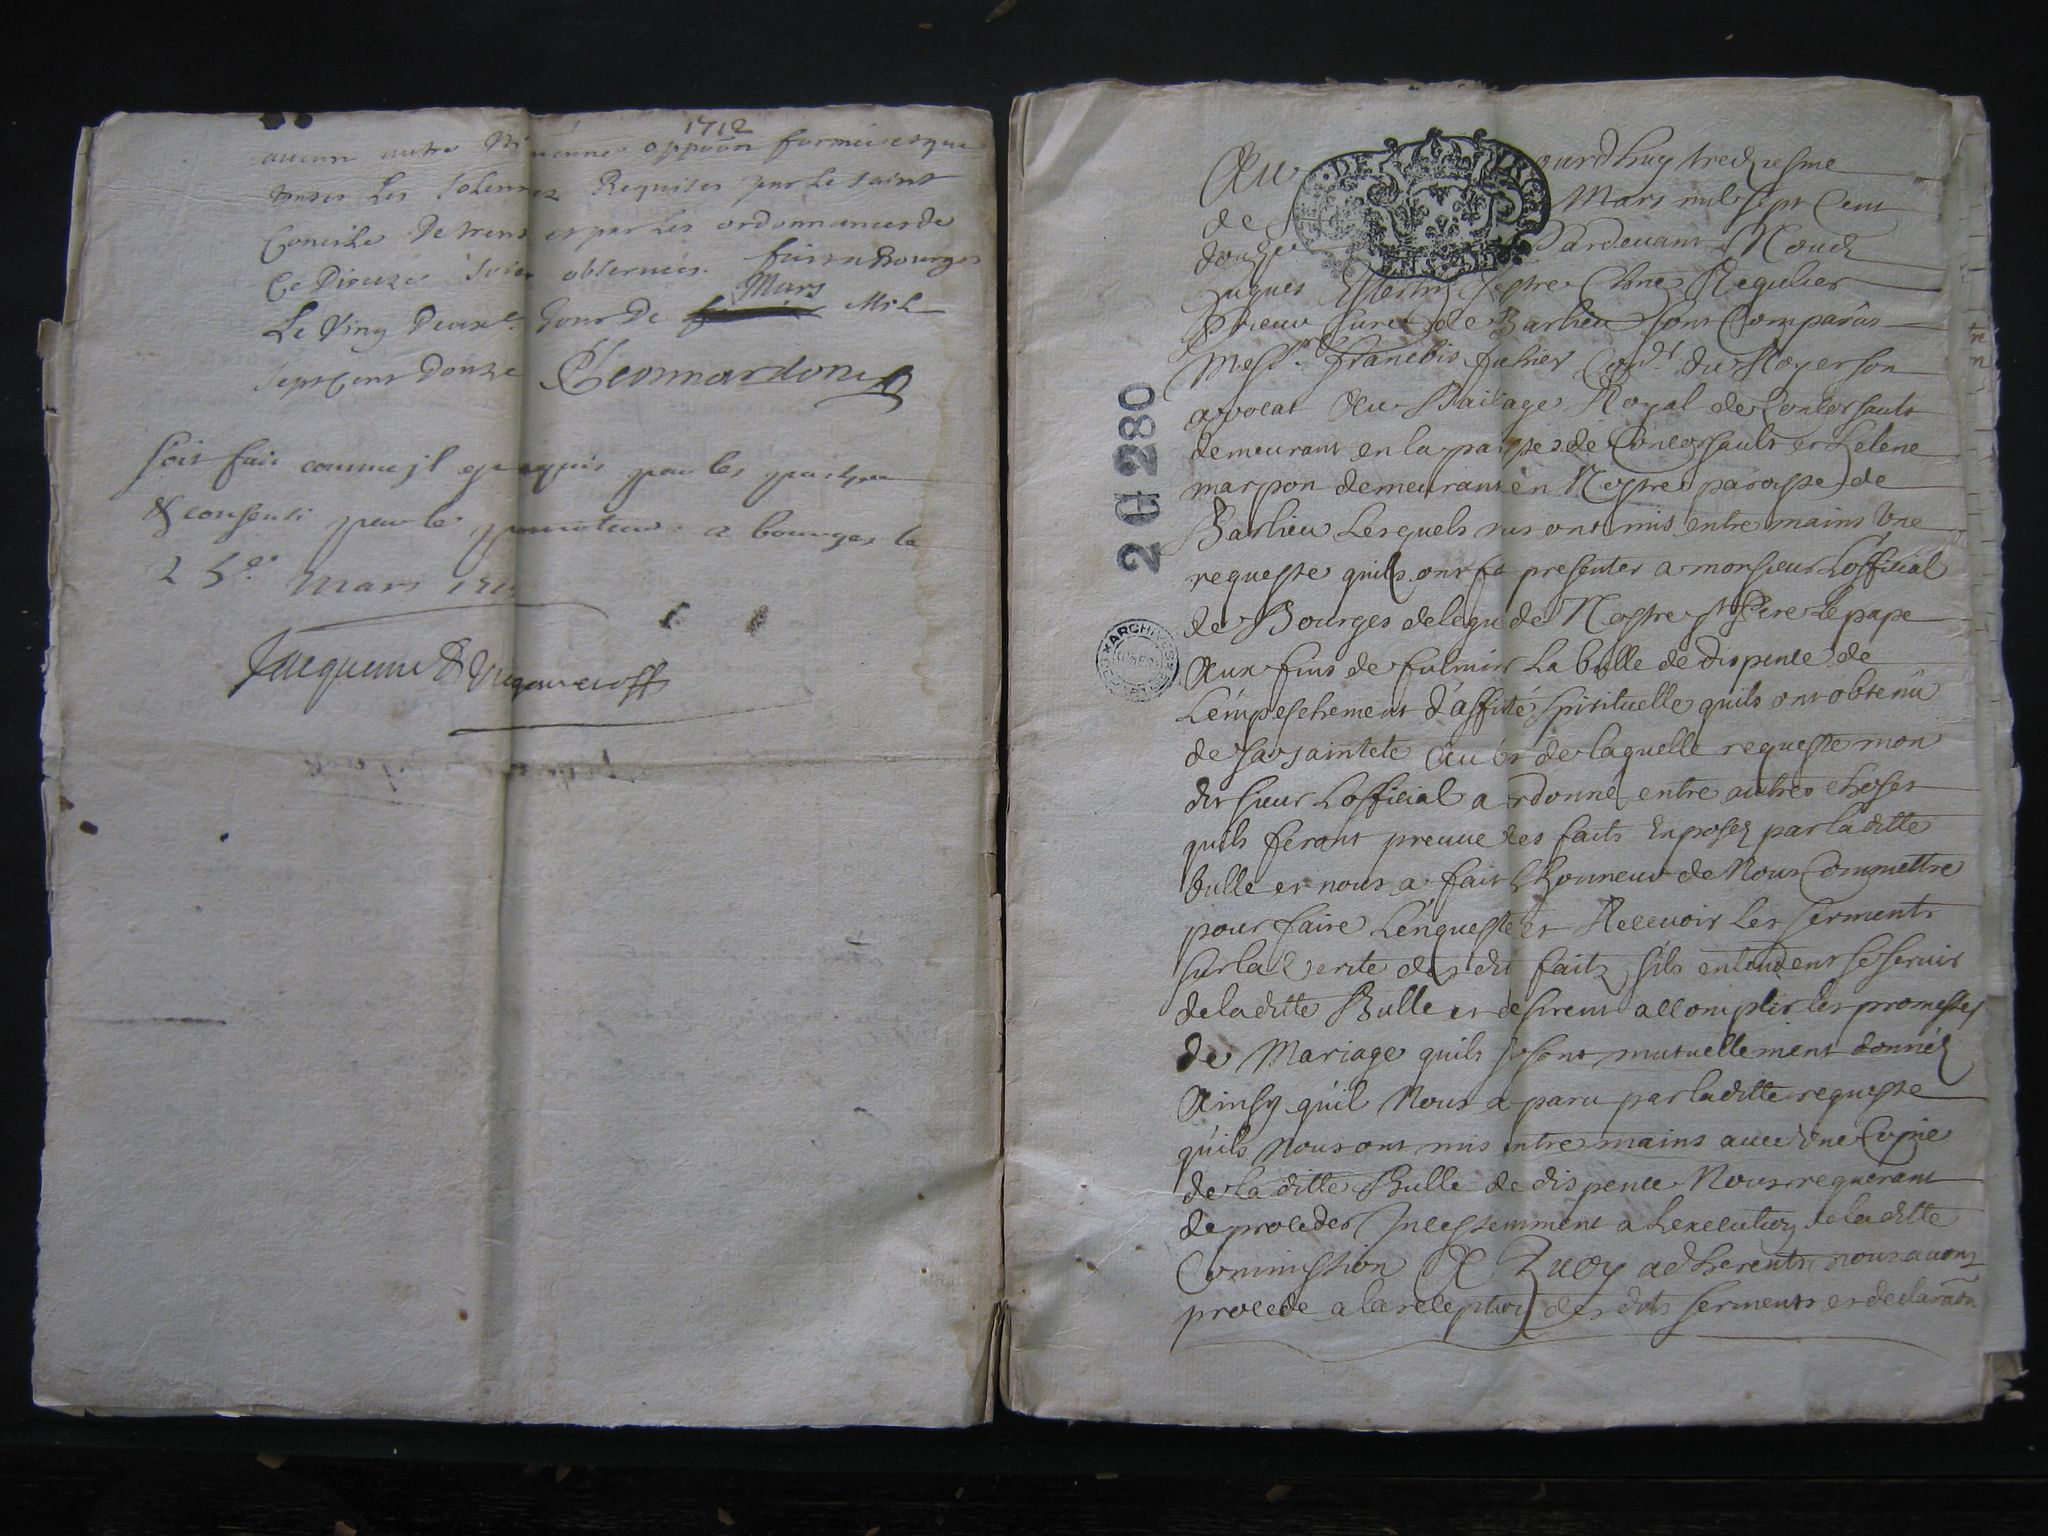 1712
aucun autre ny aucune oppoōn formée et que
toutes Les Solemnez Requises par Le Saint
Concile De trente et par Les ordonnances de
Ce Dioceze Soient observées. fait a Bourges
Le Ving Deuxe Jour De Mars Mil
Sept Cent Douze Leonnardon
soit fait comme jl est requis par les parties
& consenti par le promoteur a bourges le
25e mars 1712
Jacquemet Vicegerent off
Au jourdhuy tredziesme
de Mars mil sept Cent
douze Pardevant Nous
Jaques prestre Chne Regulier
Prieur Curé de Barlieu sont Comparûs
Messr. francois fusier Conr. du Roy et son
avocat Au Bailage Royal de Concorsault
demeurant en la paisse de Concorsault et helene
marpon demeurant en Nostre paroisse de
Barlieu Lesquels nus ont mis entre mains Une
requeste quils ont ft presenter a monsieur Lofficial
de Bourges delegu de Nostre st Pere Le pape
Aux fins de fulmier La bulle de dispence de
Lémpeschement d'affité spirituelle quils ont obtenû
de sa sainteté Au bs de laquelle requeste mon
dit sieur Lofficial a ordonné entre autres choses
quils feront preuue des faits Exposez par laditte
bulle et nous a fait Lhonneur de Nous Commettre
pour faire Lénqueste et Recevoir Les serments
sur la Verite des dit faits sils entendent se servir
de laditte Bulle et desirent accomplir les promesses
de Mariage quils se sont mutuellement donnéz
Ainsy quil Nous a paru par laditte requeste
quils Nous ont mis entre mains avec Une Copie
de la ditte Bulle de dispence Nous requerant
de proceder Incessemment a Lexecution de laditte
Commission A Quoy adherents nous avons
procede a la reception des dits serments et declaraōn
2 G 280
ARCHIVES